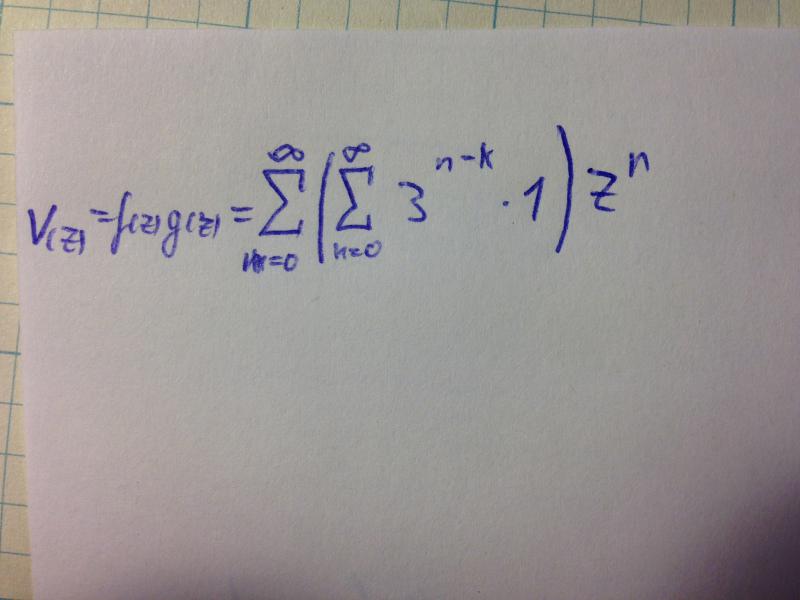 V(z) = f(z) g(z) = ∞∑n=0 ( ∞∑n=0 3^(n-k) · 1 ) z^n